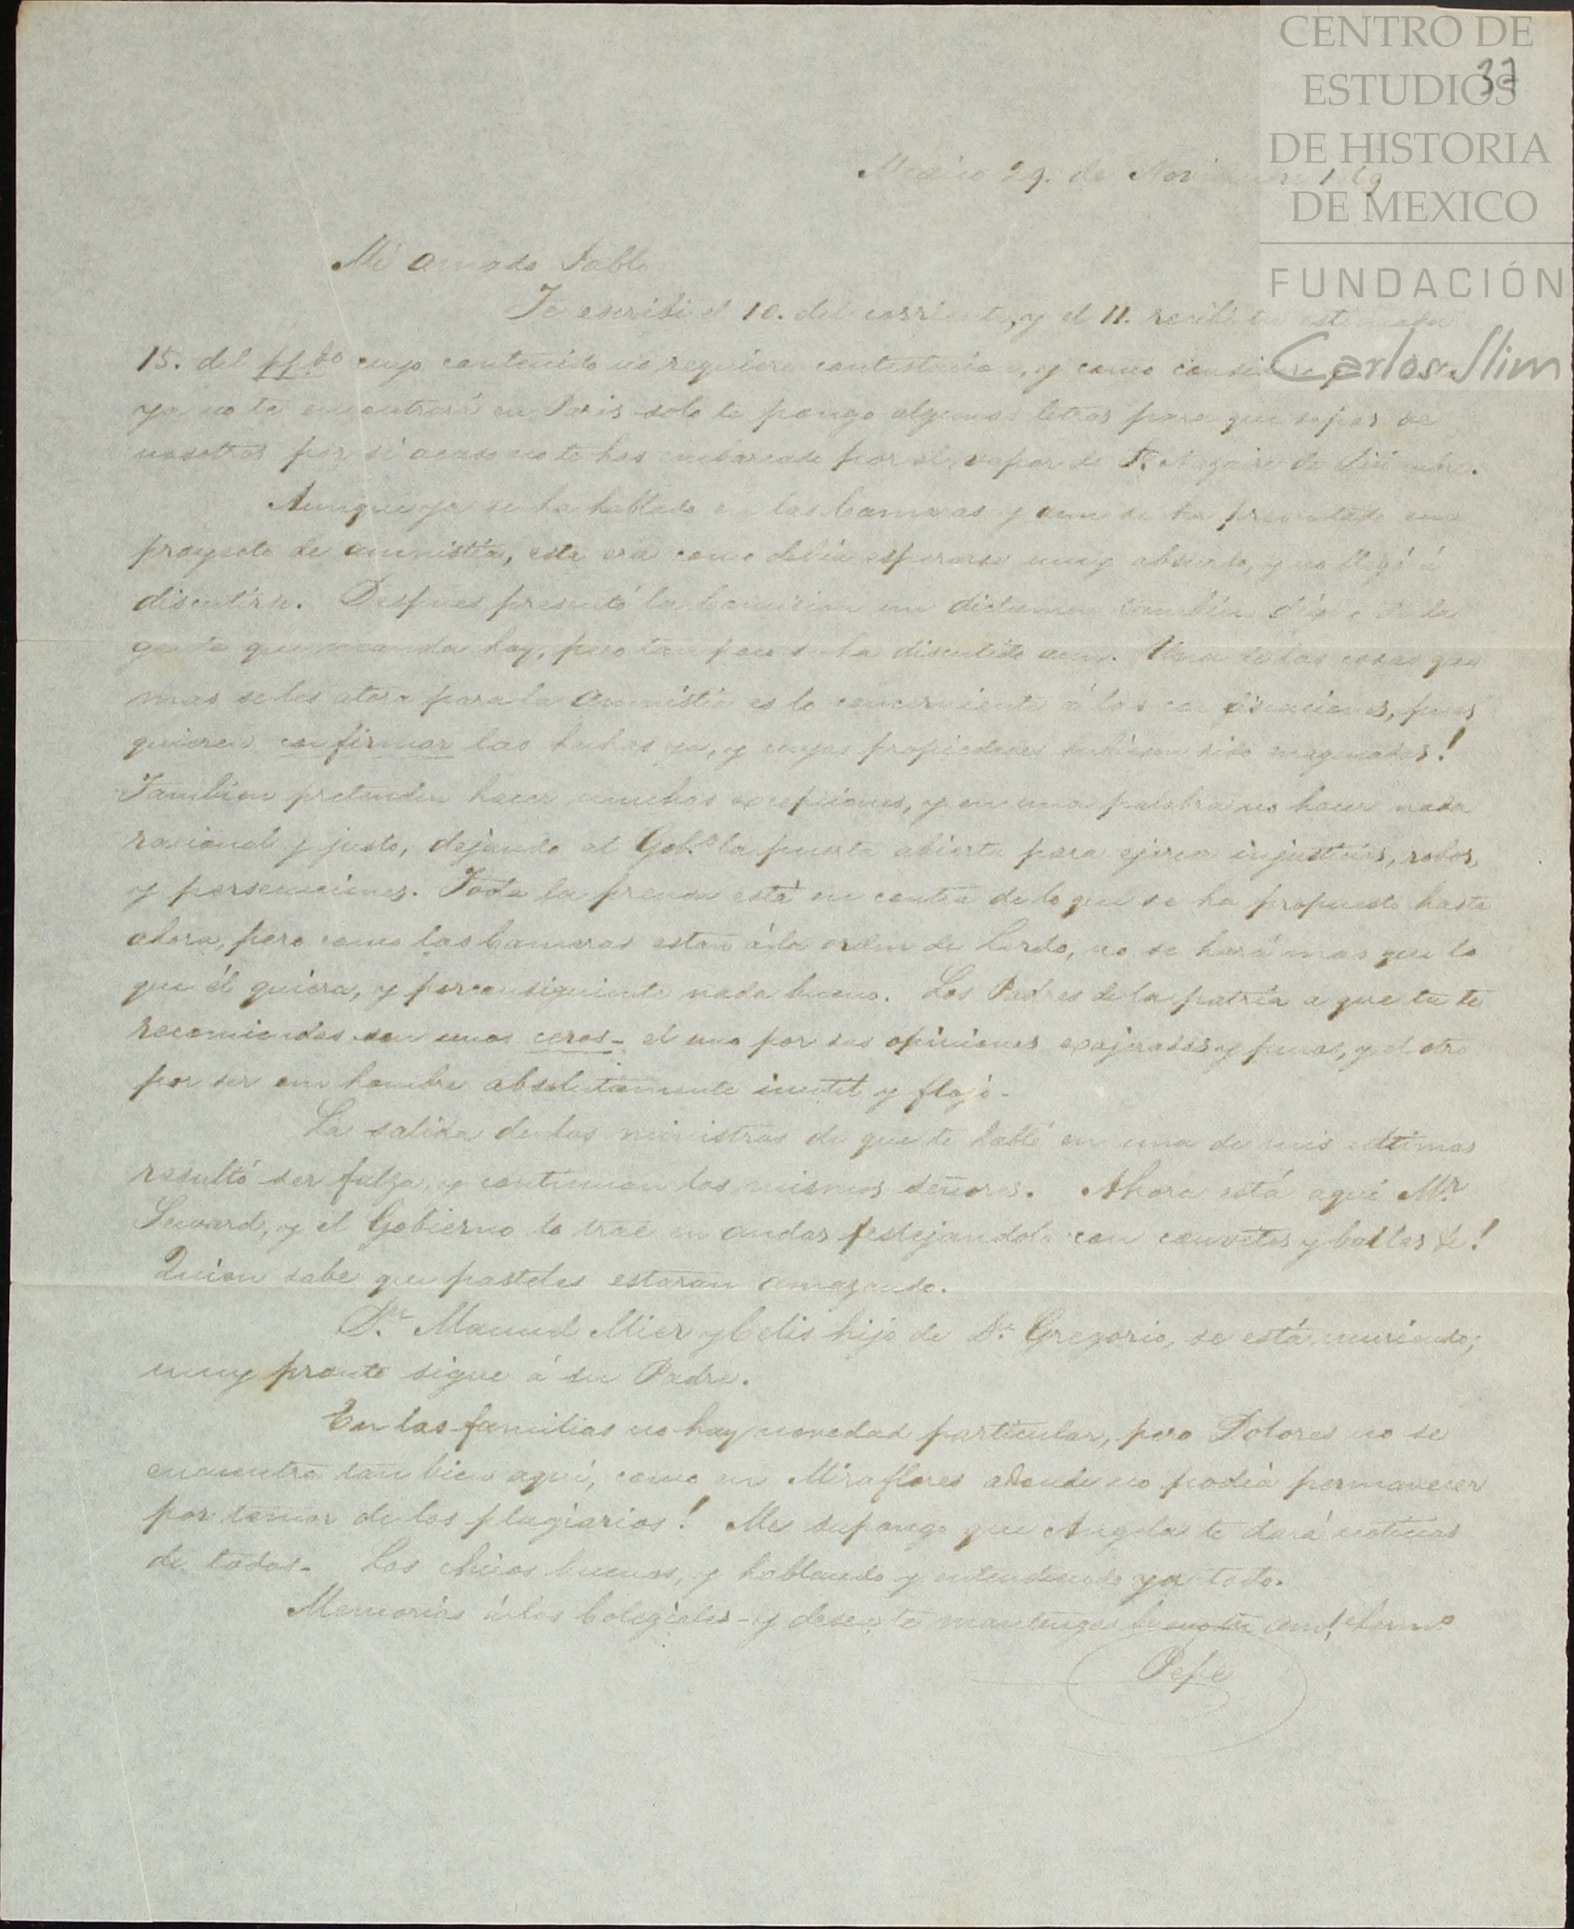 CENTRO DE
ESTUDIOS
DE HISTORIA
DE MEXICO
FUNDACIÓN
Carlos Slim
37
Mexico 29. de Noviembre 1869
Mi amado Pablo
Te escribi el 10. del corriente, y el 11. recibi tu estimada
15. del pp.do cuyo contenido no requiere contestacion, y como considero
ya no te encontrará en Paris solo te pongo algunas letras para que sepas de
nosotros por si acaso no te has embarcado por el vapor de St. Nazaire de Diciembre.
Aunque ya se ha hablado en las Camaras y aun se ha presentado un
proyecto de amnistía, este era como debia esperarse muy absurdo, y no llegó á
discutirse. Despues presentó la Comision un dictamen tambien digno de la
gente que manda hoy, pero tampoco se ha discutido aun. Una de las cosas que
mas se les atora para la amnistia es lo concerniente á las confiscaciones, pues
quieren confirmar las hechas ya, y cuyas propiedades hubiesen sido enagenadas!
Tambien pretenden hacer muchas excepciones, y en una palabra no hacer nada
racional y justo, dejando al Gob.o la puerta abierta para ejercer injusticias, robos,
y persecuciones. Toda la prensa está en contra de lo que se ha propuesto hasta
ahora, pero como las Camaras estan á la orden de Lerdo, no se hará mas que lo
que él quiera, y por consiguiente nada bueno. Los Padres de la patria a que tu te
recomiendas son unos ceros- el uno por sus opiniones exajeradas y puras, y el otro
por ser un hombre absolutamente inutil y flojo-
La salida de los ministros de que te hablé en una de mis ultimas
resultó ser falza, y continuan los mismos señores. Ahora está aquí Mr.
Seward, y el Gobierno lo trae en andas festejandolo con convites y bailes &!
Quien sabe que pasteles estaran amazando.
Dn. Manuel Mier y Celis hijo de Dn. Gregorio, se está muriendo;
muy pronto sigue á su Padre.
En las familias no hay novedad particular, pero Dolores no se
encuentra tan bien aquí, como en Miraflores adonde no podia permanecer
por temor de los plagiarios! Me supongo que Angela te dará noticias
de todos- Los chicos buenos, y hablando y entendiendo ya todo.
Memorias á los Colegiales- y deseo te mantengas bueno tu am.te herm.o
Pepe